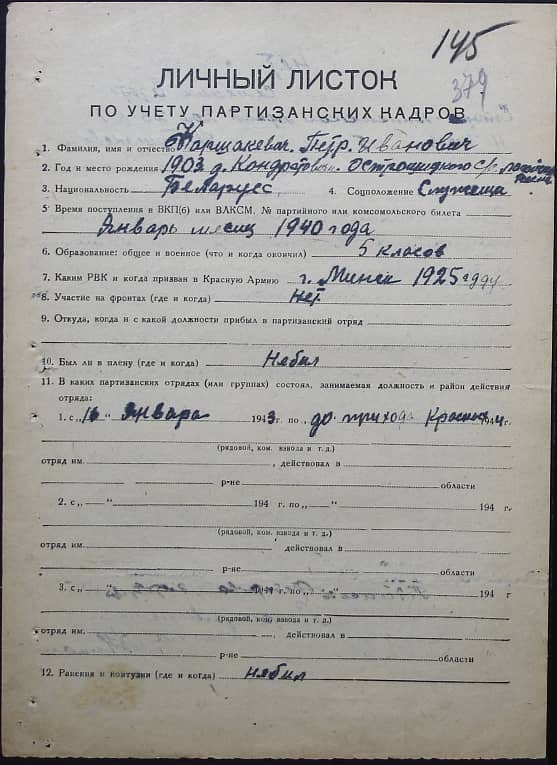 145
379
ЛИЧНЫЙ ЛИСТОК
ПО УЧЕТУ ПАРТИЗАНСКИХ КАДРОВ
1. Фамилия, имя и отчество Каршакевич. Петр. Иванович
2. Год и место рождения 1903 д. Кондратович. Острошицкого с/с
3. Национальность Беларус 4. Соцположение Служещи
5. Время поступления в ВКП(б) или ВЛКСМ, № партийного или комсомольского билета
Январь месяц 1940 года
6. Образование: общее и военное (что и когда окончил) 5 класов
7. Каким РВК и когда призван в Красную Армию г. Минск 1925 году
8. Участие на фронтах (где и когда) нет
9. Откуда, когда и с какой должности прибыл в партизанский отряд
10. Был ли в плену (где и когда) Небыл
11. В каких партизанских отрядах (или группах) состоял, занимаемая должность и район действия
отряда:
1. с „16" Января 1943 г. по „ до прихода Красных 1944 г.
(рядовой, ком. взвода и т. д.)
отряд им. , действовал в
р-не области
2. с „ " 194 г. по „ " 194 г.
(рядовой, ком. взвода и т. д.)
отряд им. , действовал в
р-не области
3. с „ " 194 г. по „ " 194 г
(рядовой, ком. взвода и т. д.)
отряд им. , действовал в
р-не области
12. Ранения и контузии (где и когда) небыл